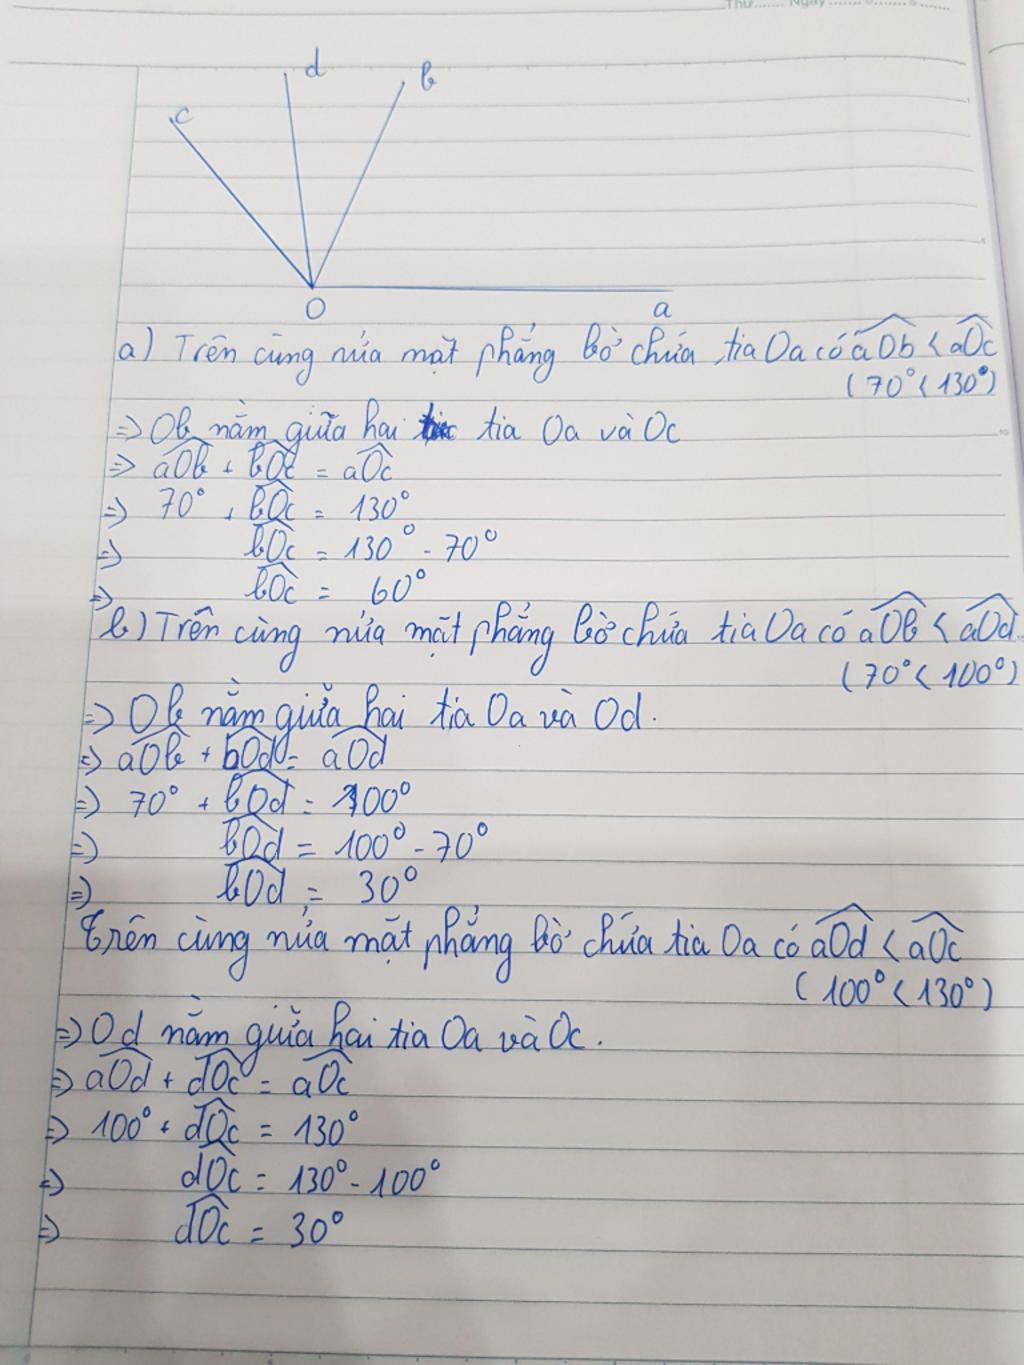 Thứ....... Ngày
d
b
c
O
a
a) Trên cùng nửa mặt phẳng bờ chứa tia Oa có aOb < aOc
(70° < 130°)
=> Ob nằm giữa hai tia Oa và Oc
=> aOb + bOc = aOc
=> 70° + bOc = 130°
=> bOc = 130° - 70°
=> bOc = 60°
b) Trên cùng nửa mặt phẳng bờ chứa tia Oa có aOb < aOd
(70° < 100°)
=> Ob nằm giữa hai tia Oa và Od.
=> aOb + bOd = aOd
=> 70° + bOd = 100°
=> bOd = 100° - 70°
=> bOd = 30°
Trên cùng nửa mặt phẳng bờ chứa tia Oa có aOd < aOc
(100° < 130°)
=> Od nằm giữa hai tia Oa và Oc.
=> aOd + dOc = aOc
=> 100° + dOc = 130°
=> dOc = 130° - 100°
=> dOc = 30°